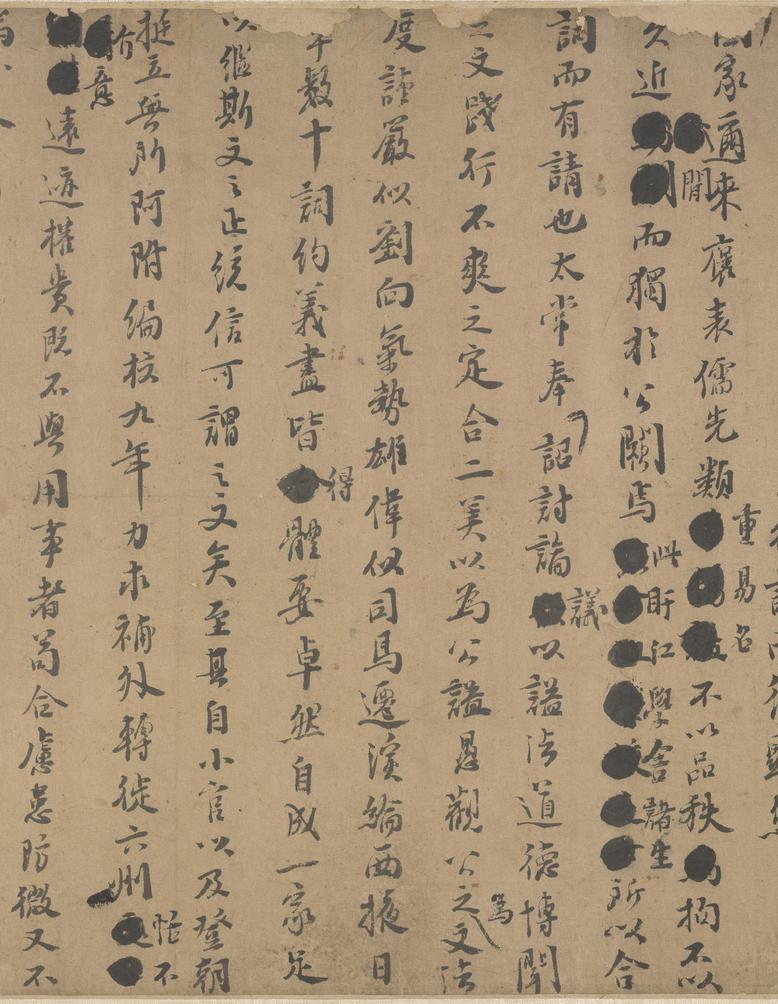 國家邇來褒表儒先類重易名不以品秩拘不以
久近間而獨於公闕焉此盱江學舍諸生所以合
詞而有請也太常奉詔討論議以謚法道德博聞
曰文踐行不爽之定合二美以爲公謚愚觀公之爲文法
度謹嚴似劉向氣勢雄偉似司馬遷演綸西掖日
草數十詞約義盡皆得體要卓然自成一家足
以繼斯文之正統信可謂之文矣至其自小官以及登朝
挺立無所阿附編校九年力求補外轉徙六州恬不
介意遠迹權貴既不與用事者苟合慮患防微又不